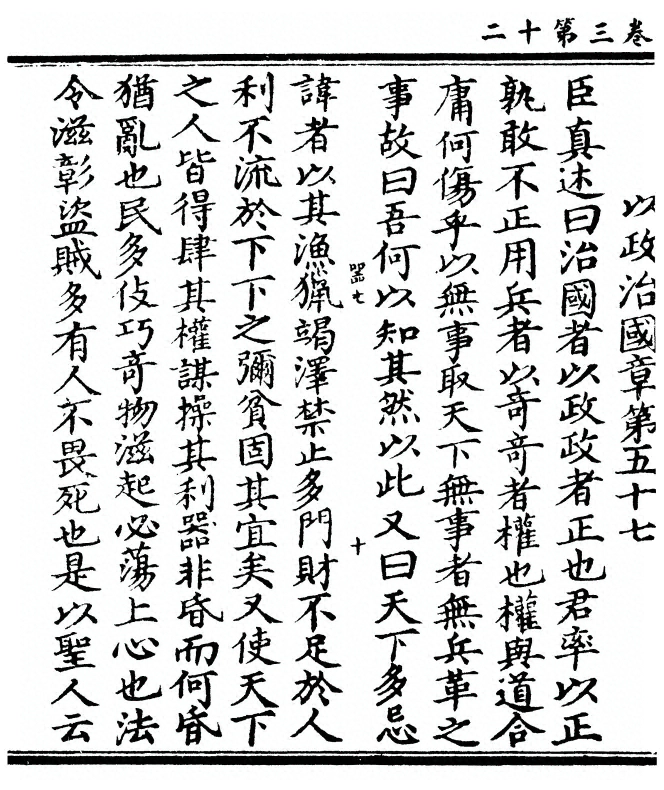 卷三第十二
以政治國章第五十七
臣真述曰治國者以政政者正也君率以正
孰敢不正用兵者以奇奇者權也權與道合
庸何傷乎以無事取天下無事者無兵革之
事故曰吾何以知其然以此又曰天下多忌
器七
十
諱者以其漁獵竭澤禁止多門財不足於人
利不流於下下之彌貧固其宜矣又使天下
之人皆得肆其權謀操其利器非昏而何昏
猶亂也民多伎巧奇物滋起必蕩上心也法
令滋彰盜賊多有人不畏死也是以聖人云